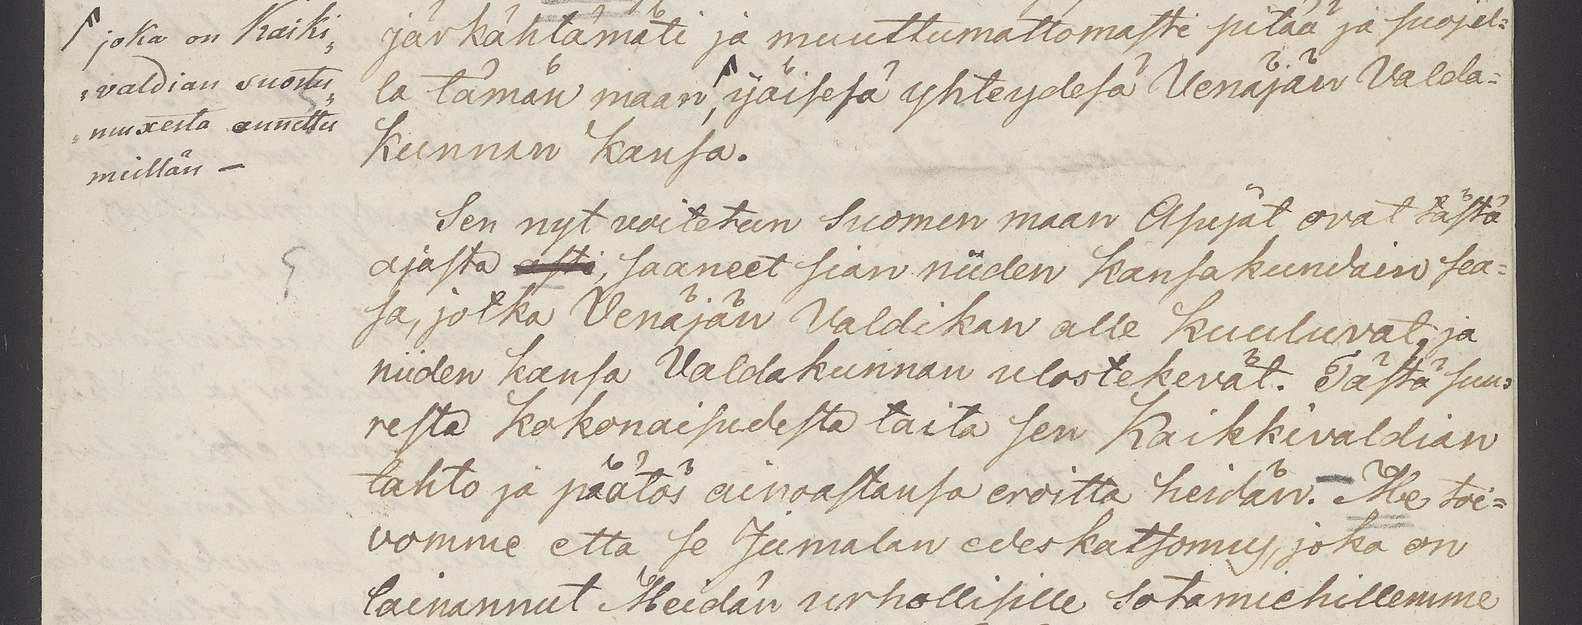 joka on Kaiki„
„valdian suostu„
„muxesta annettu
meillän —
järkähtämäti ja muuttumattomasti pitää ja suojel=
la tämän maan, yxisesä yhteydesä Venäjän Valda=
kunnan kansa.
Sen nyt voitetun Suomen maan Asujat ovat tästä
ajasta asti, saaneet sian niiden kansakundain sea=
sa, jotka Venäjän Valdikan alle kuuluvat, ja
niiden kansa Valdakunnan ulostekevät. Tästä suu=
resta kokonaisudesta taita sen Kaikkivaldian
tahto ja päätös ainoastansa eroitta heidän. — Me toi=
vomme että se Jumalan edeskatsomus, joka on
lainannut Meidän urhollisille Sotamiehillemme